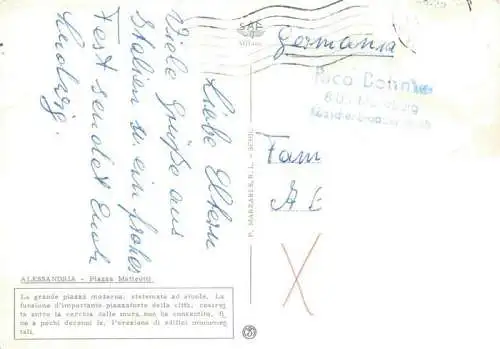 Liebe Eltern
Viele Grüße aus
Italien u. ein frohes
Fest sendet Euch
Ludwig.
SAF
MILANO
Germania
Rico Bonn
Fam
A. E
P. MARZARI S.R.L. - SCHIO
ALESSANDRIA - Piazza Matteotti
La grande piazza moderna, sistemata ad aiuole. La
funzione d'importante piazzaforte della città, costret-
ta entro la cerchia delle mura, non ha consentito, fi-
no a pochi decenni fa, l'erezione di edifici monumen-
tali.